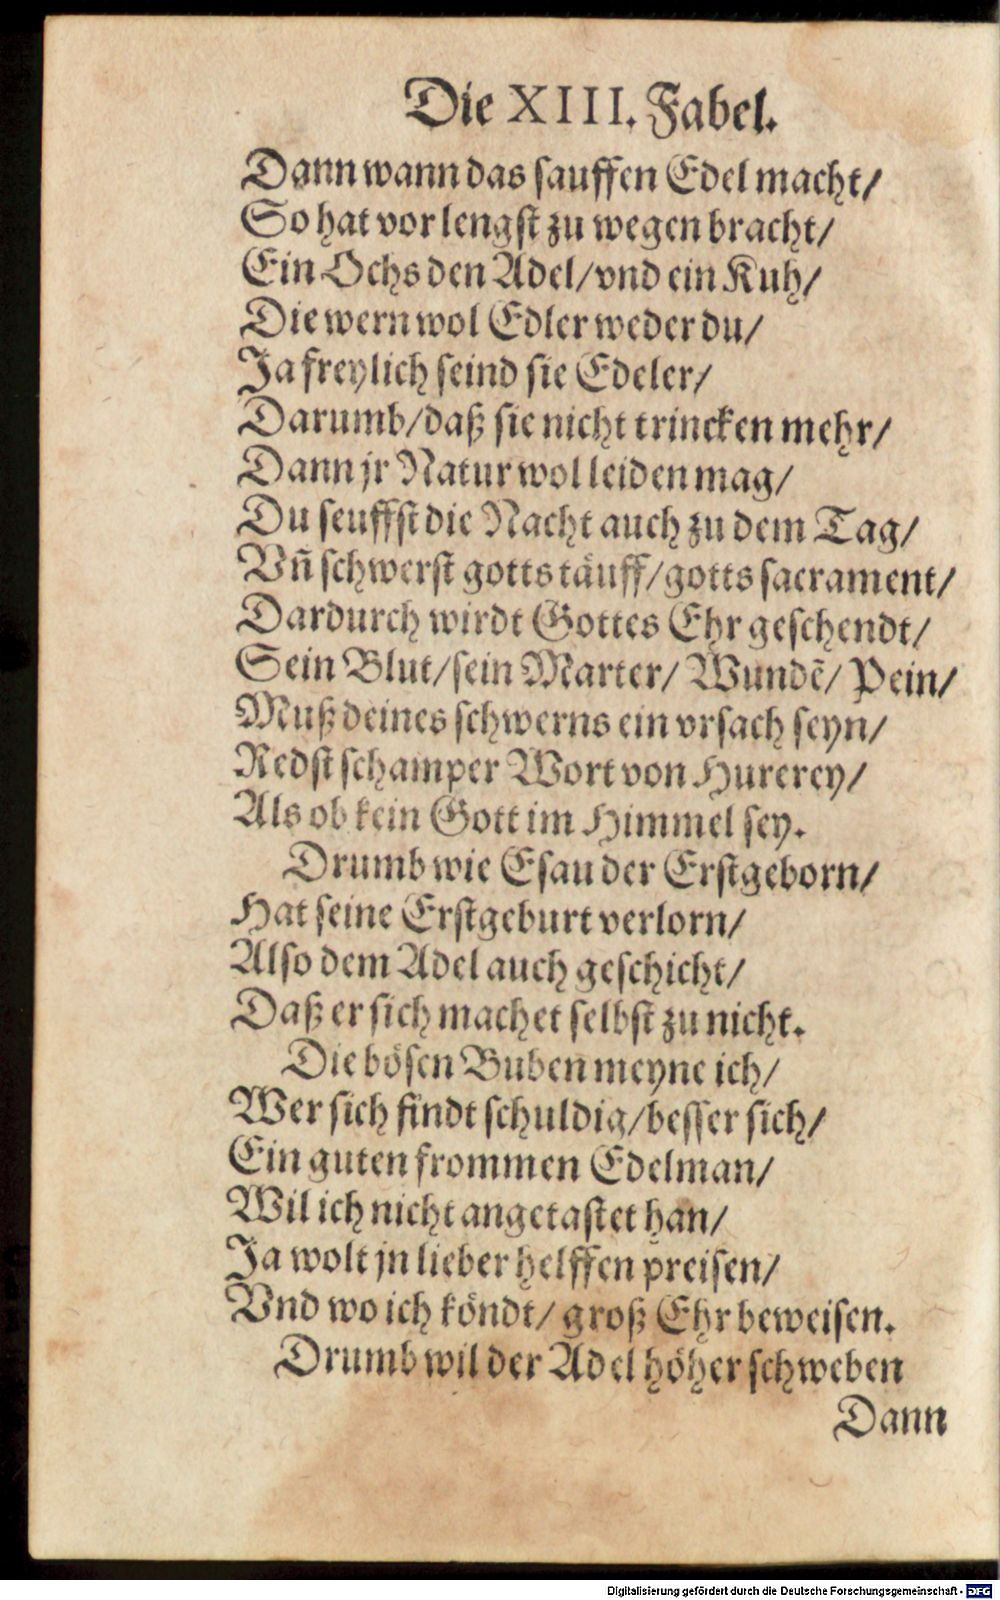 Die XIII. Fabel.
Dann wann das sauffen Edel macht/
So hat vor lengst zu wegen bracht/
Ein Ochs den Adel/vnd ein Kuh/
Die wern wol Edler weder du/
Ja freylich seind sie Edeler/
Darumb/daß sie nicht trincken mehr/
Dann jr Natur wol leiden mag/
Du seuffst die Nacht auch zu dem Tag/
Vñ schwerst gotts täuff/gotts sacrament/
Dardurch wirdt Gottes Ehr geschendt/
Sein Blut/sein Marter/ Wundẽ/ Pein/
Muß deines schwerns ein vrsach seyn/
Redst schamper Wort von Hurerey/
Als ob kein Gott im Himmel sey.
Drumb wie Esau der Erstgeborn/
Hat seine Erstgeburt verlorn/
Also dem Adel auch geschicht/
Daß er sich machet selbst zu nicht.
Die bösen Buben meyne ich/
Wer sich findt schuldig/besser sich/
Ein guten frommen Edelman/
Wil ich nicht angetastet han/
Ja wolt jn lieber helffen preisen/
Vnd wo ich köndt/ groß Ehr beweisen.
Drumb wil der Adel höher schweben
Dann
Digitalisierung gefördert durch die Deutsche Forschungsgemeinschaft - DFG